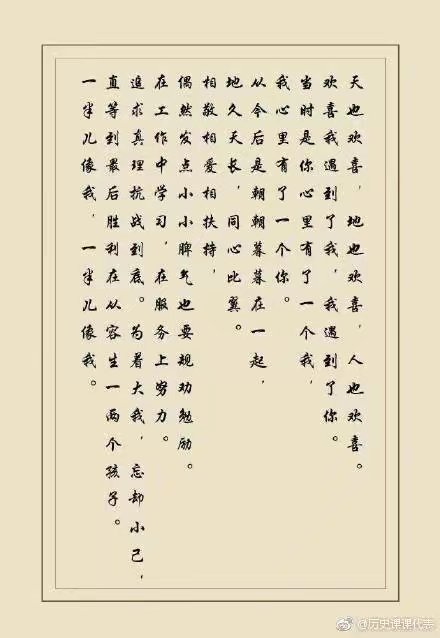 天也欢喜，地也欢喜，人也欢喜。
欢喜我遇到了我，我遇到了你。
当时是你心里有了一个我，
我心里有了一个你。
从今后是朝朝暮暮在一起，
地久天长，同心比翼。
相敬相爱相扶持，
偶然发点小小脾气也要规劝勉励。
在工作中学习，在服务上努力。
追求真理抗战到底。为着大我，忘却小己，
直等到最后胜利在从容生一两个孩子。
一半儿像我，一半儿像我。
@历史课课代表